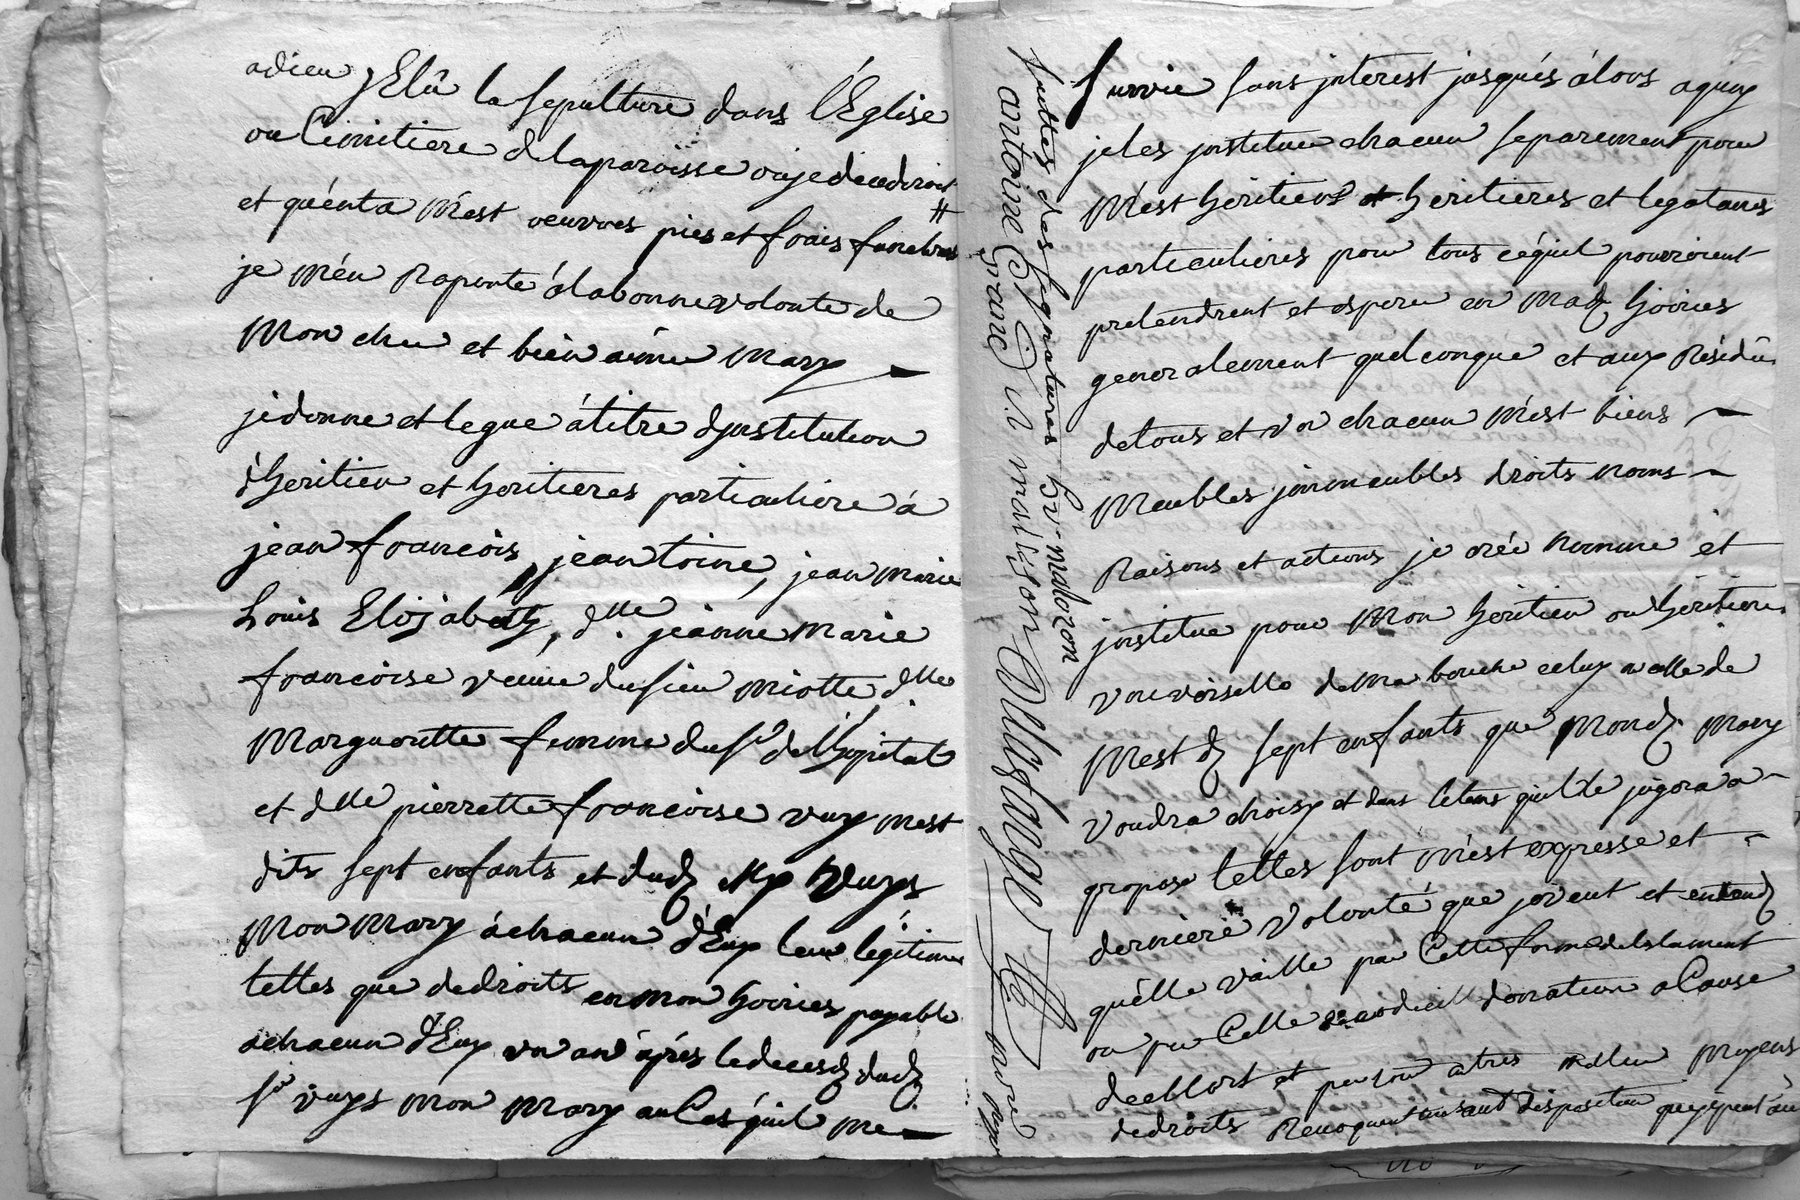 adieu jElû la sepulture dans l'Eglise
ou Cimitiere de laparoisse oujedecederoit
et quénta m'est oeuvres pies et frais funebres
je m'éu Raporte álabonnevolonte de
Mon cher et bien aimé Mary
jedonne et legue átitre djnstitution
d'heritier et heritieres particuliere á
jean françois, jeantoine, jean marie
Louis Elisabeth, dlle jeanne marie
francoise veuve dusieur Miotte, dlle
Margueritte femme du sr de l'hopital
et dlle pierrette francoise vuy mest
dits sept enfants et dud Vuys
Mon Mary áchacun d'Eux leur légitime
telles que dedroits en mon hoiries payable
achacun d'Eux un an áprés ledeces dud
sr vuys Mon Mary auCas quil me
suittes des signatures h v. maloron
antoine Grand maitson Clerc
Survie sans jnterest jusqués álors aquoy
jeles jnstitue chacun separement pour
M'est heritiers et heritieres et legataires
particulieres pour tous céquil pourroient
pretendrent et esperer en Mad hoiries
generalement quelconque et aux Résidu
detous et un chacun M'est biens
Meubles jmmeubles droits noms
Raisons et actions je crée Nomme et
jnstitue pour Mon heritier ou heritiere
universelle dema bouche celuy ou celle de
Mest d sept enfants que Mond Mary
Voudra choisy et dans letems quil le jugera a
propos telles sont m'est expresse et
derniere Volonté que jeveut et entend
quélle vaille par Cette forme detestament
ou par Celle decodicill donation aCause
demort et par tout autres meilleur Moyens
dedroits Revoquent disposition